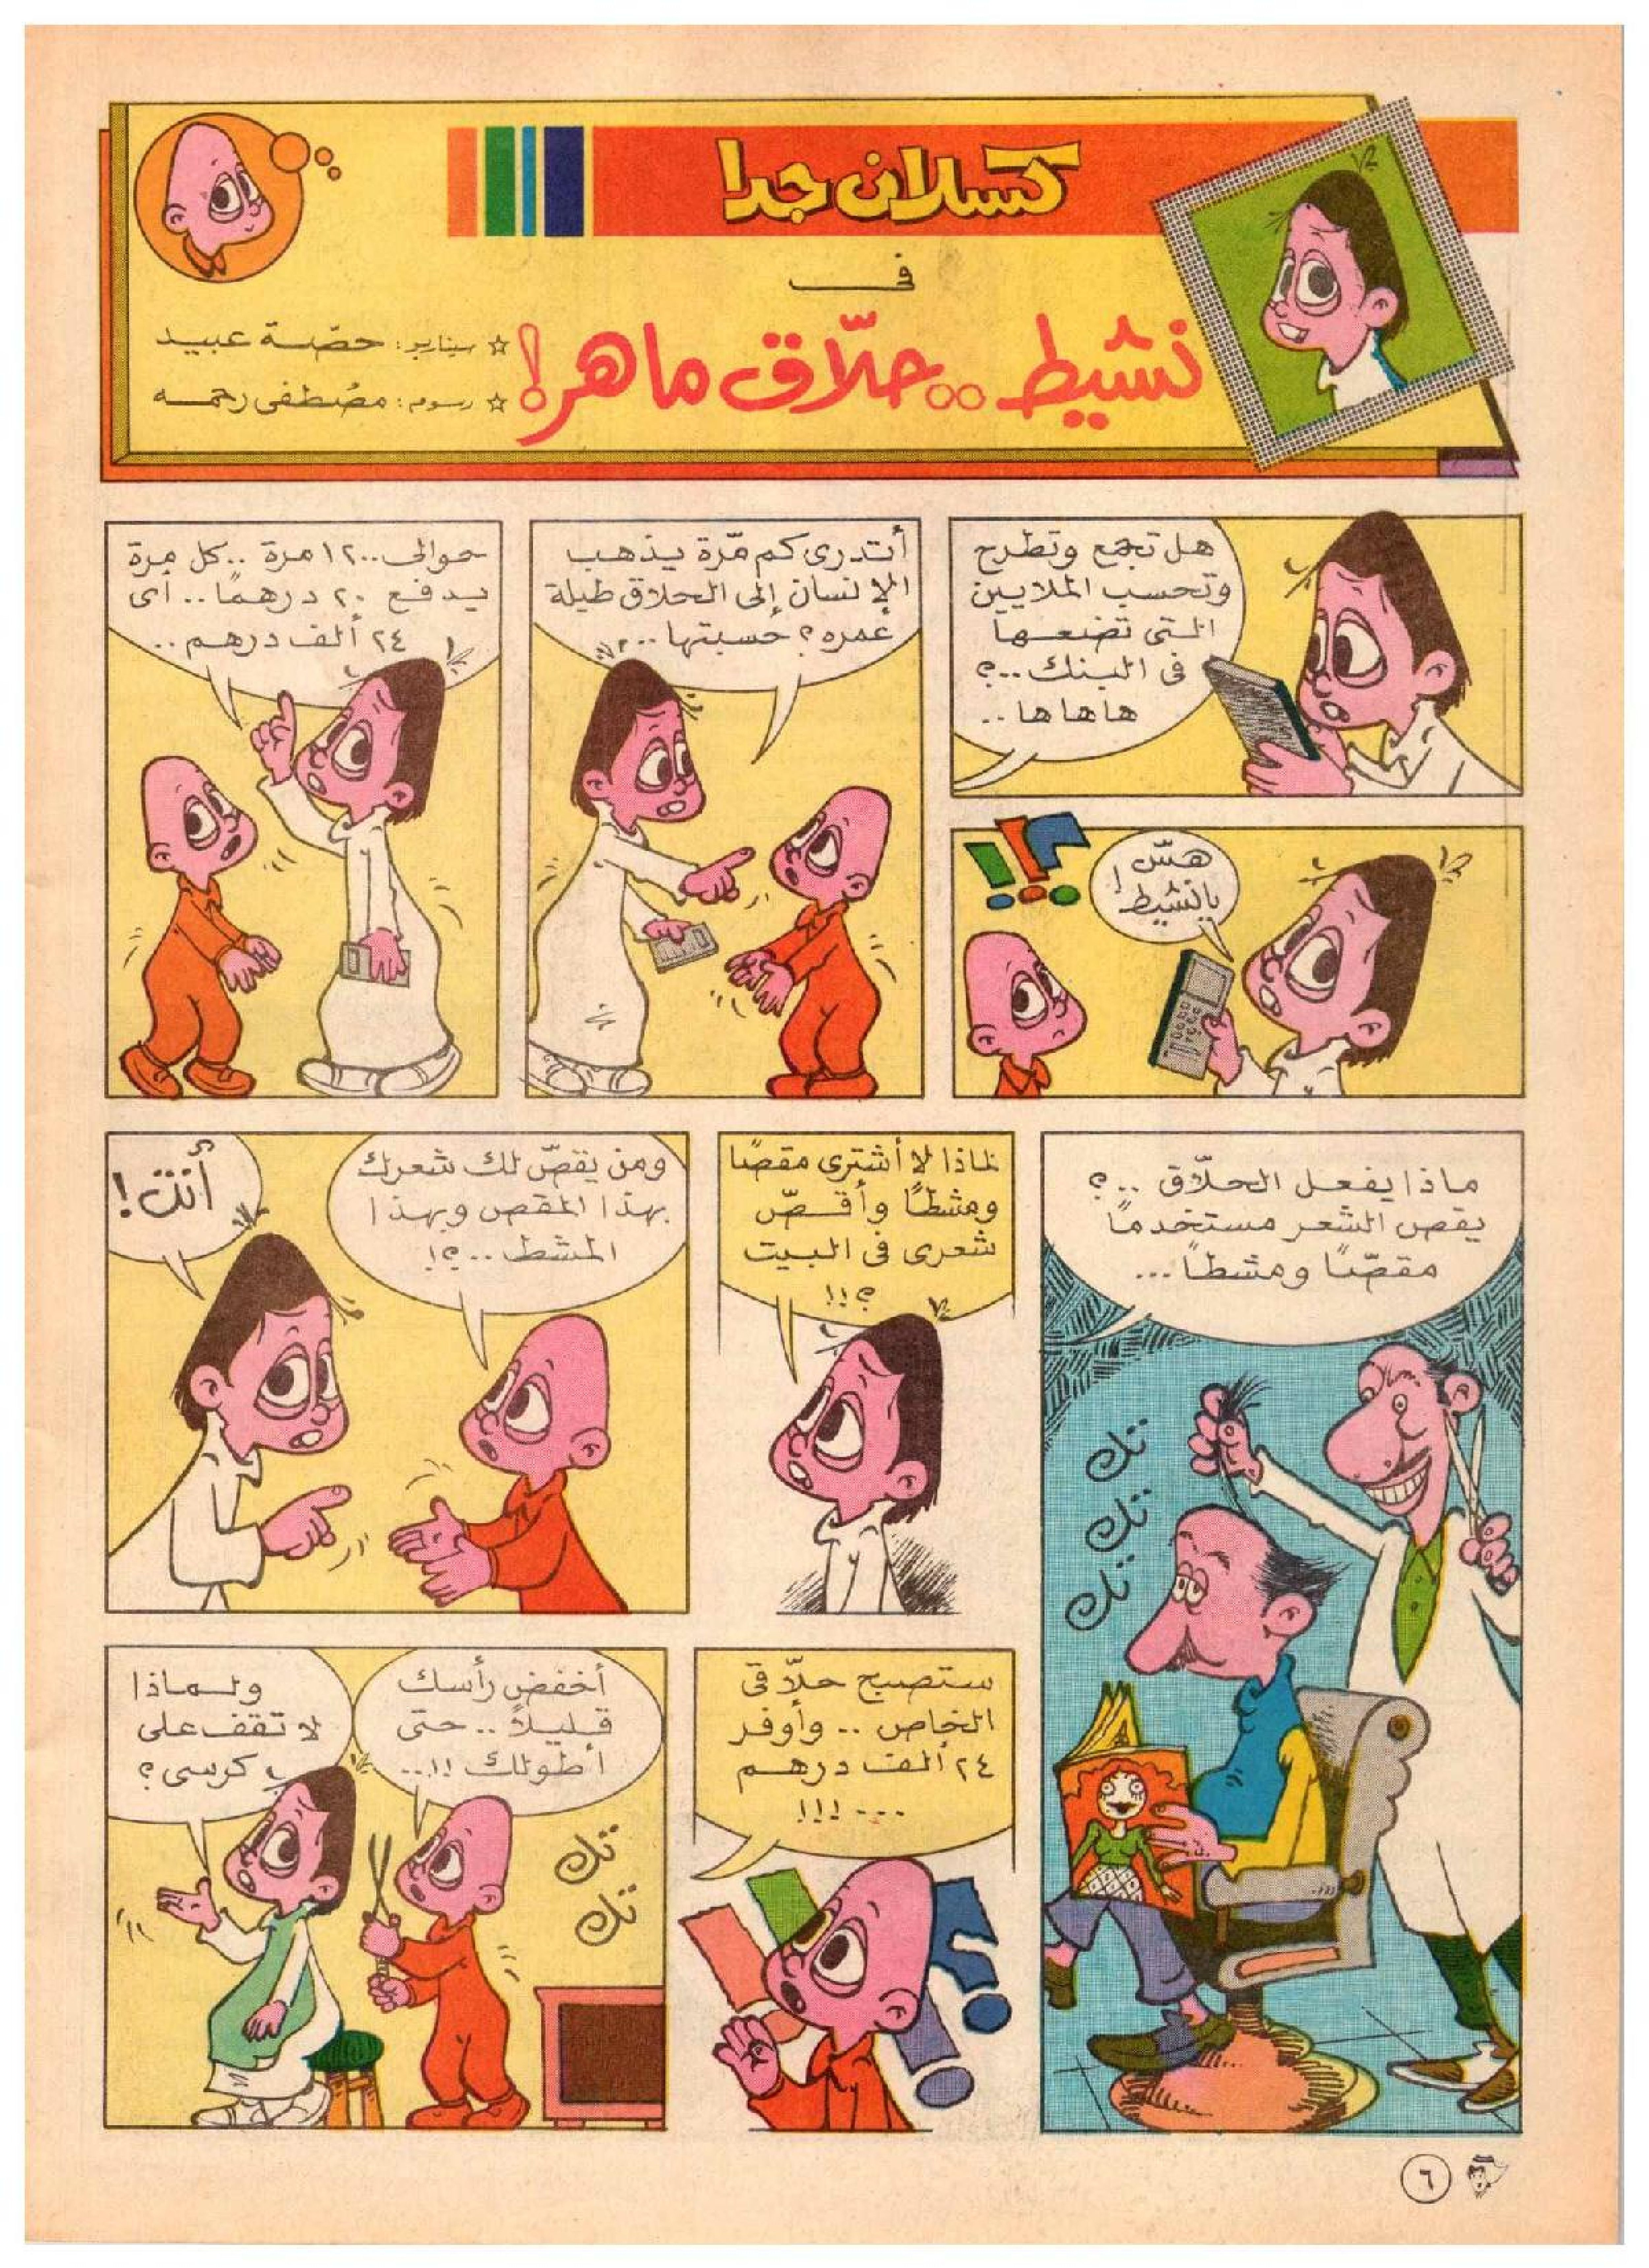 كسلان جدا
فى
نشيط .. حلاّق ماهر!
☆ سيناريو: حصّة عبيد
☆ رسوم: مصطفى رحمه
هل تجمع وتطرح
وتحسب الملايين
التى تضعها
فى البنك ..؟
ها ها ها ..
هسّ
يا نشيط!
أتدرى كم مّرة يذهب
الإنسان إلى الحلاق طيلة
عمره؟ حسبتها ...
حوالى ١٢٠٠ مرة .. كل مرة
يدفع ٢٠ درهمًا .. أى
٢٤ ألف درهم ..
ماذا يفعل الحلاّق ..؟
يقص الشعر مستخدمًا
مقصّا ومشطاً ...
تك
تك
تك
لماذا لا أشترى مقصًا
ومشطًا وأقصّ
شعرى فى البيت
؟!!
ومن يقصّ لك شعرك
بهذا المقص وبهذا
المشط ..؟!
أنت!
ستصبح حلاّقى
الخاص .. وأوفر
٢٤ ألف درهم
... !!!
أخفض رأسك
قليلاً .. حتى
أطولك !!..
ولماذا
لا تقف على
كرسى؟
تك
تك
٦